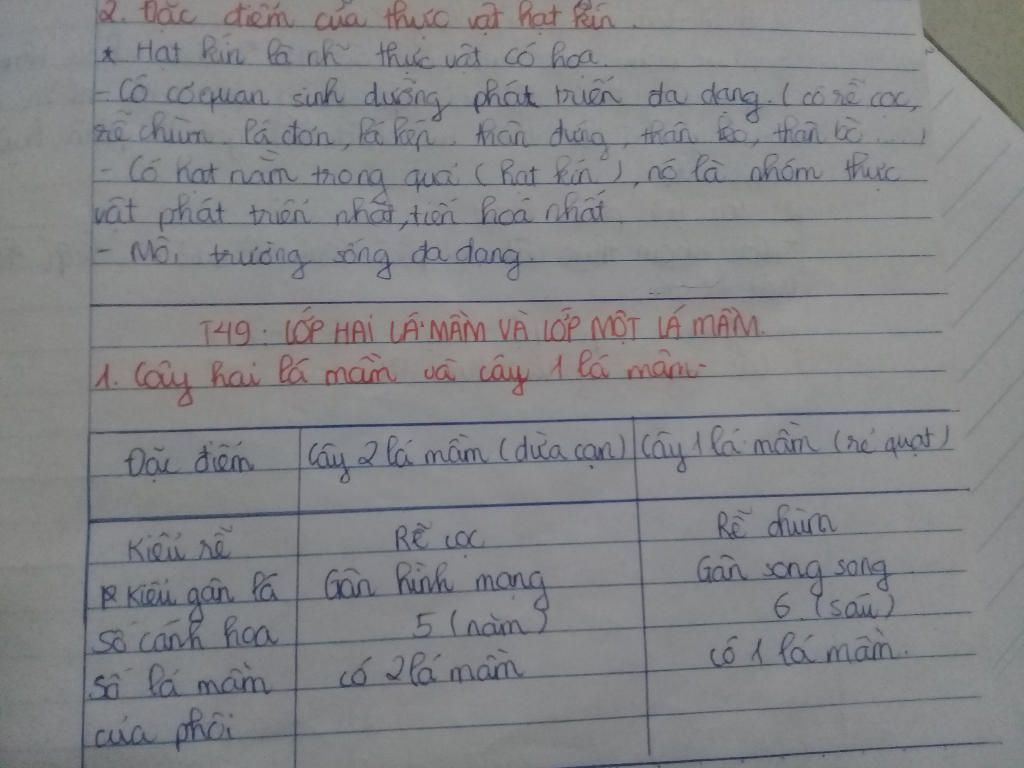 2. Đặc điểm của thực vật hạt kín.
* Hạt kín là nh~ thực vật có hoa.
- Có cơ quan sinh dưỡng phát triển đa dạng. (có rễ cọc,
rễ chùm, lá đơn, lá kép, thân đứng, thân leo, thân bò...)
- Có hạt nằm trong quả (hạt kín), nó là nhóm thực
vật phát triển nhất, tiến hoá nhất.
- Môi trường sống đa dạng.
T49: LỚP HAI LÁ MẦM VÀ LỚP MỘT LÁ MẦM.
1. Cây hai lá mầm và cây 1 lá mầm.
Đặc điểm Cây 2 lá mầm (dừa cạn) Cây 1 lá mầm (rẻ quạt)
Kiểu rễ Rễ cọc Rễ chùm
Kiểu gân lá Gân hình mạng Gân song song
Số cánh hoa 5 (năm) 6 (sáu)
Số lá mầm có 2 lá mầm có 1 lá mầm.
của phôi